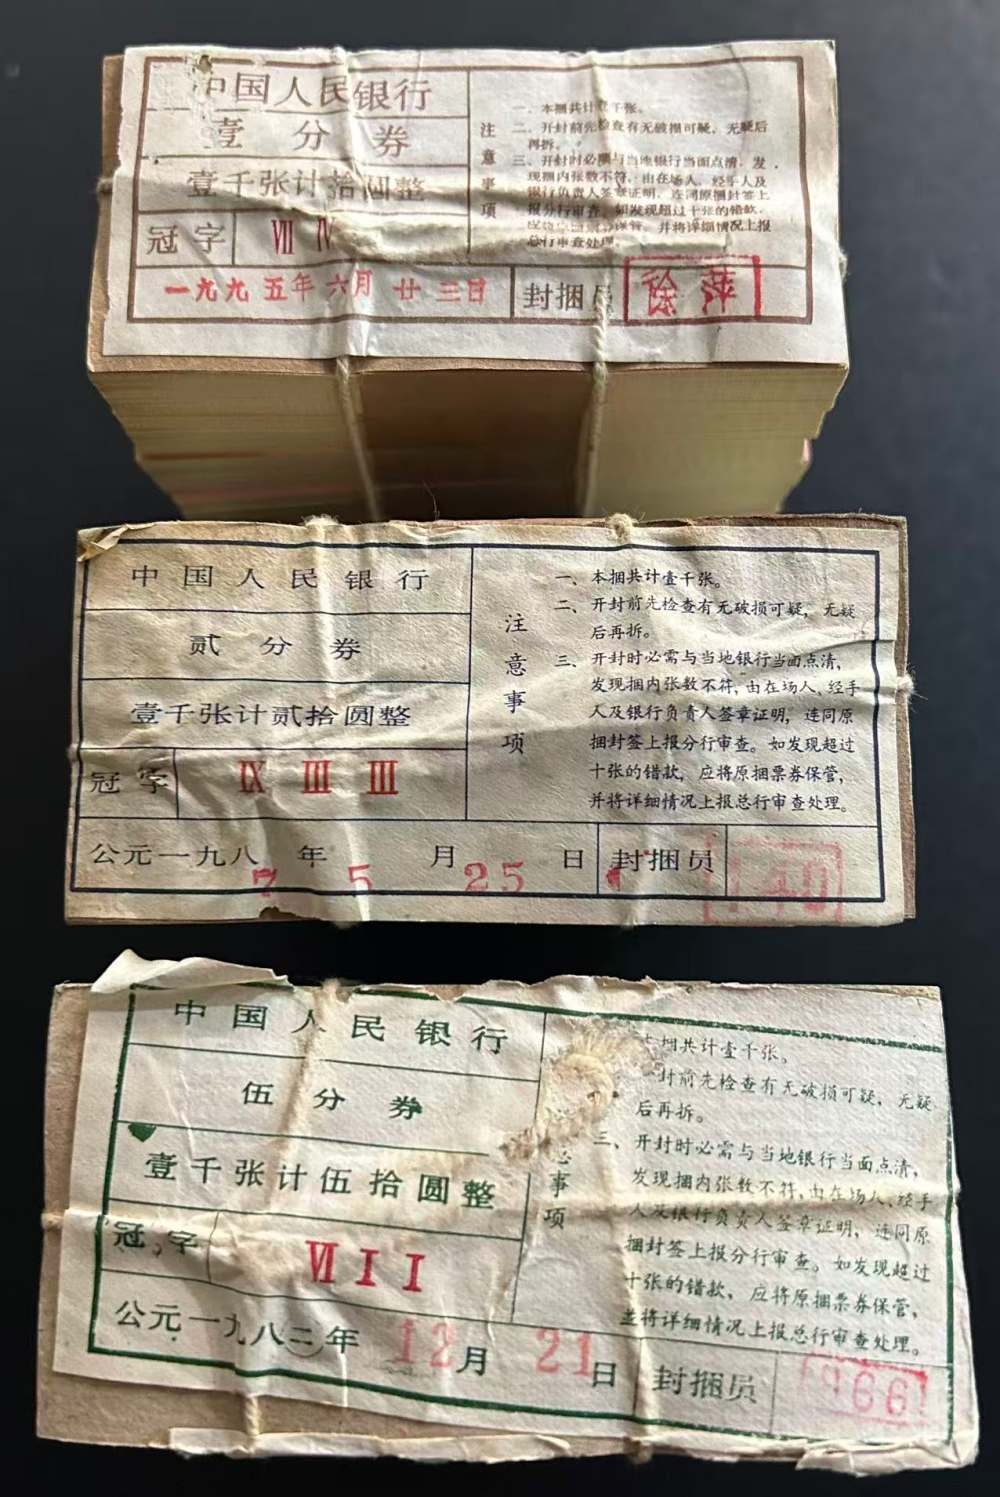 中国人民银行
壹分券
壹千张计拾圆整
冠字 Ⅶ Ⅳ
一九九五年六月廿三日
封捆员 徐萍
注意事项
一、本捆共计壹千张。
二、开封前先检查有无破损可疑，无疑后
再拆。
三、开封时必需与当地银行当面点清，发
现捆内张数不符，由在场人、经手人及
银行负责人签章证明，连同原捆封签上
报分行审查。如发现超过十张的错款，
应将原捆票券保管，并将详细情况上报
总行审查处理。
中国人民银行
贰分券
壹千张计贰拾圆整
冠字 Ⅸ Ⅲ Ⅲ
公元一九八7年5月25日
封捆员
注意事项
一、本捆共计壹千张。
二、开封前先检查有无破损可疑，无疑
后再拆。
三、开封时必需与当地银行当面点清，
发现捆内张数不符，由在场人、经手
人及银行负责人签章证明，连同原
捆封签上报分行审查。如发现超过
十张的错款，应将原捆票券保管，
并将详细情况上报总行审查处理。
中国人民银行
伍分券
壹千张计伍拾圆整
冠字 Ⅶ I I
公元一九八二年12月21日
封捆员
事项
本捆共计壹千张。
封前先检查有无破损可疑，无疑
后再拆。
三、开封时必需与当地银行当面点清，
发现捆内张数不符，由在场人、经手
人及银行负责人签章证明，连同原
捆封签上报分行审查。如发现超过
十张的错款，应将原捆票券保管，
并将详细情况上报总行审查处理。